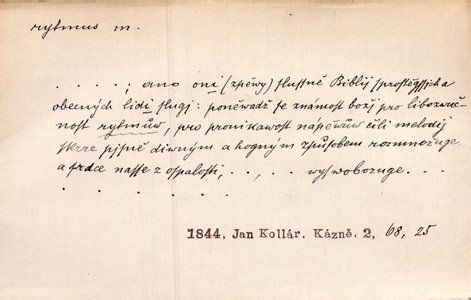 rytmus m.
. . . . . ; ano oni (zpěwy) slussně Biblij sprostěgssjch a
obecných lidi slugj: poněwadž se známost božj pro libozwuč-
nost rytmůw, pro pronikawost nápěwůw čili melodij
skrze pjsně diwným a hogným způsobem rozmnožuge
a srdce nasse z ospalosti, . , . , wyswobozuge. . .
. . . . . . .
1844, Jan Kollár. Kázně. 2, 68, 25